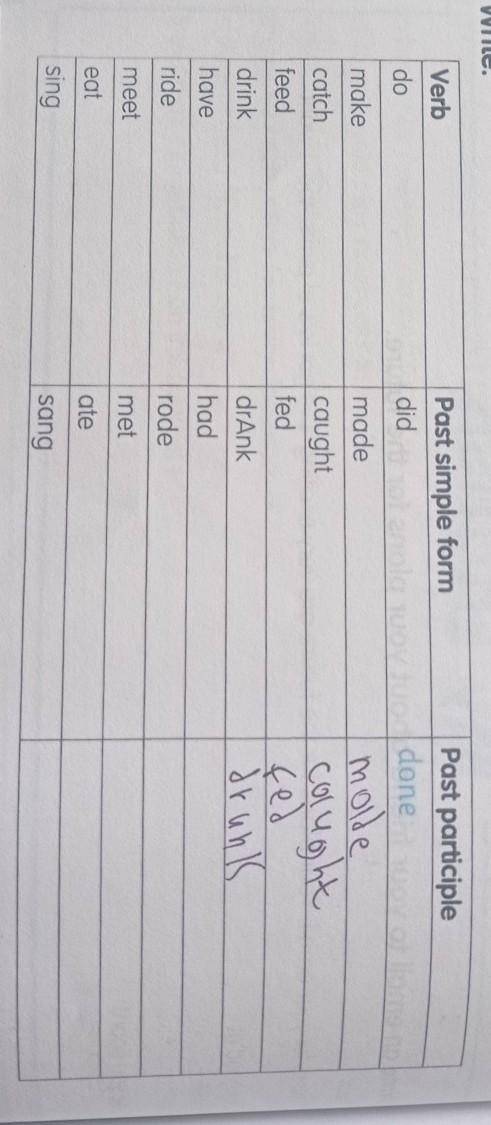 Write.
Verb Past simple form Past participle
do did done
make made made
catch caught caught
feed fed fed
drink drAnk drunk
have had
ride rode
meet met
eat ate
sing sang